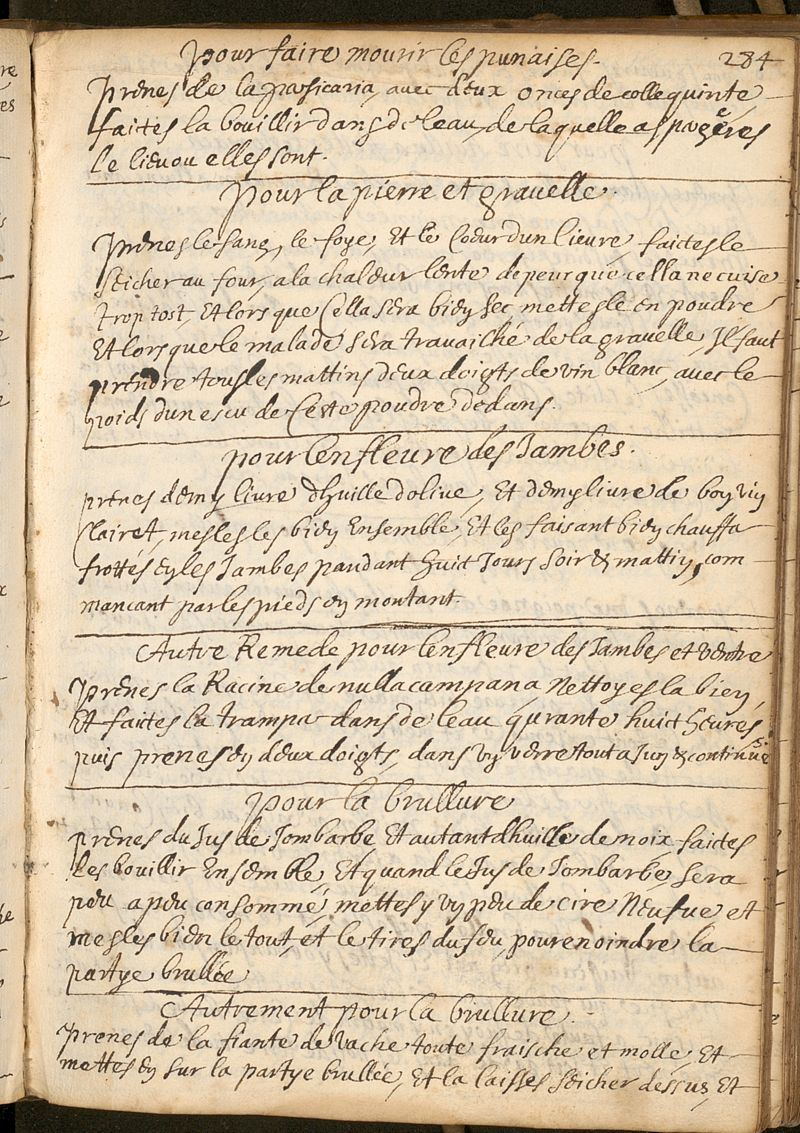 pour faire mourir les punaises. 284
prenes de la parsicaria, avec deux onces de collequinte
faites la bouillir dans de leau, de laquelle aspogeres
le lieu ou elles sont.
pour la pierre et gravelle.
prenes le sang, le foye, et le Coeur dun lieure, faictes le
seicher au four, a la chaleur lente de peur que cella ne cuise
trop tost, et lors que Cella sera bien sec, mettes le en poudre
et lors que le malade sera travaiché de la gravelle, Il faut
prendre tous les mattins deux doigts de vin blanc, avec le
poids dun escu de Ceste poudre dedans.
pour lenfleure des Jambes.
prenes demy livre dhuille dolive, et demy livre de bon vin
Clairet, mesles les bien Ensemble, et les faisant bien chauffa
frottes en les Jambes pandant huict Jours soir & mattin, com
mancant par les pieds en montant.
Autre Remede pour lenfleure des Jambes et ventre
prenes la Racine de nulla campana, Nettoyes la bien,
et faites la trampa dans de leau quarante huict heures,
puis prenes en deux doigts, dans un verre tout a Jun & continue
pour la brullure
prenes du Jus de Jombarbe, et autant dhuille de noix faictes
les bouillir Ensemble, et quand le Jus de Jombarbe, sera
peu a peu consommé, mettes y un peu de cire Neufue et
mesles bien le tout, et le tires du feu, pour en oindre la
partye brullée
Autrement pour la brullure.
prenes de la fiante de vache toute fraische et molle, et
mettes en sur la partye brullée, et la laisses seicher dessus, et